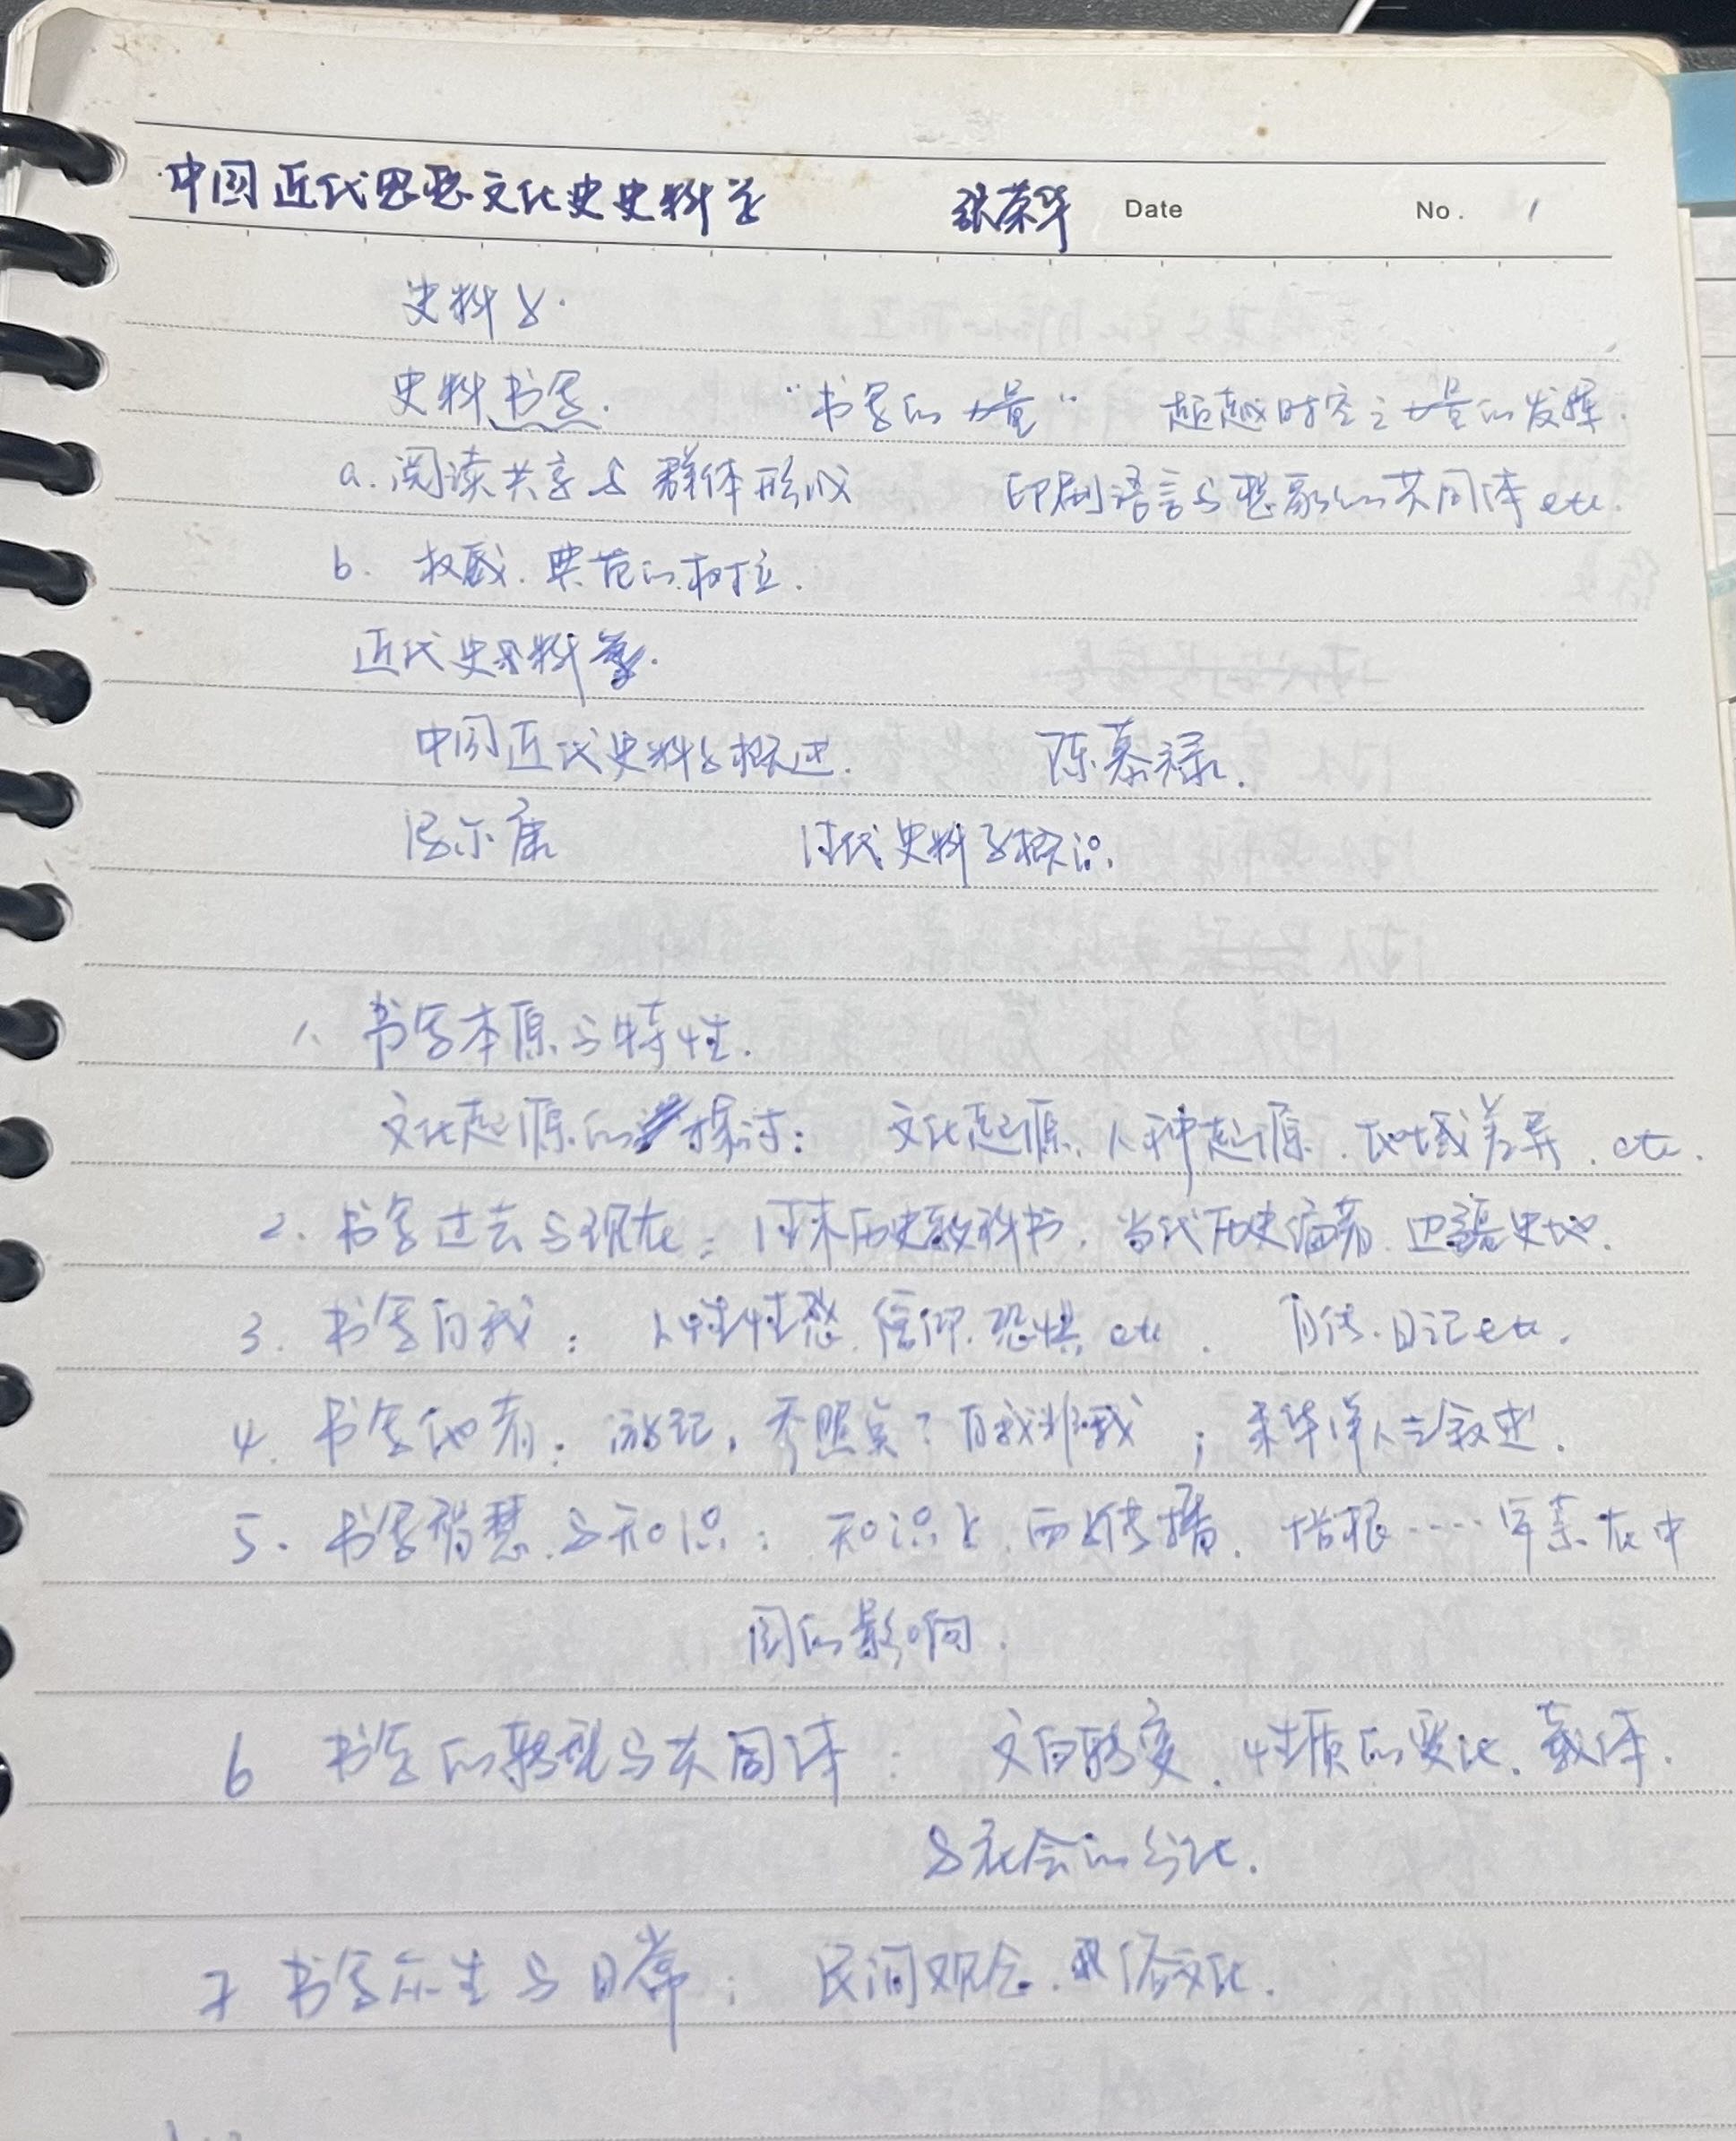 中国近代思想文化史史料学 张荣华 Date No. 1
史料学.
史料书写. “书写的力量” 超越时空之力量的发挥.
a. 阅读共享与群体形成 印刷语言与想象的共同体 etc.
b. 权威. 典范的树立.
近代史史料学.
中国近代史料学概述. 陈恭禄.
冯尔康 清代史料学概论.
1. 书写本原与特性.
文化起源的探讨: 文化起源. 人种起源. 地域差异. etc.
2. 书写过去与现在: 清末历史教科书. 当代历史编著. 边疆史地.
3. 书写自我: 人性性感. 信仰. 恐惧. etc. 自传. 日记 etc.
4. 书写他者: 游记. 参照矣? 自我非我; 来华洋人之叙述.
5. 书写智慧与知识: 知识 传播. 培根……等 在中
国的影响.
6 书写的转型与共同体: 文白转变. 性质的变化. 载体.
与社会的分化.
7 书写众生与日常: 民间观念. 俗文化.